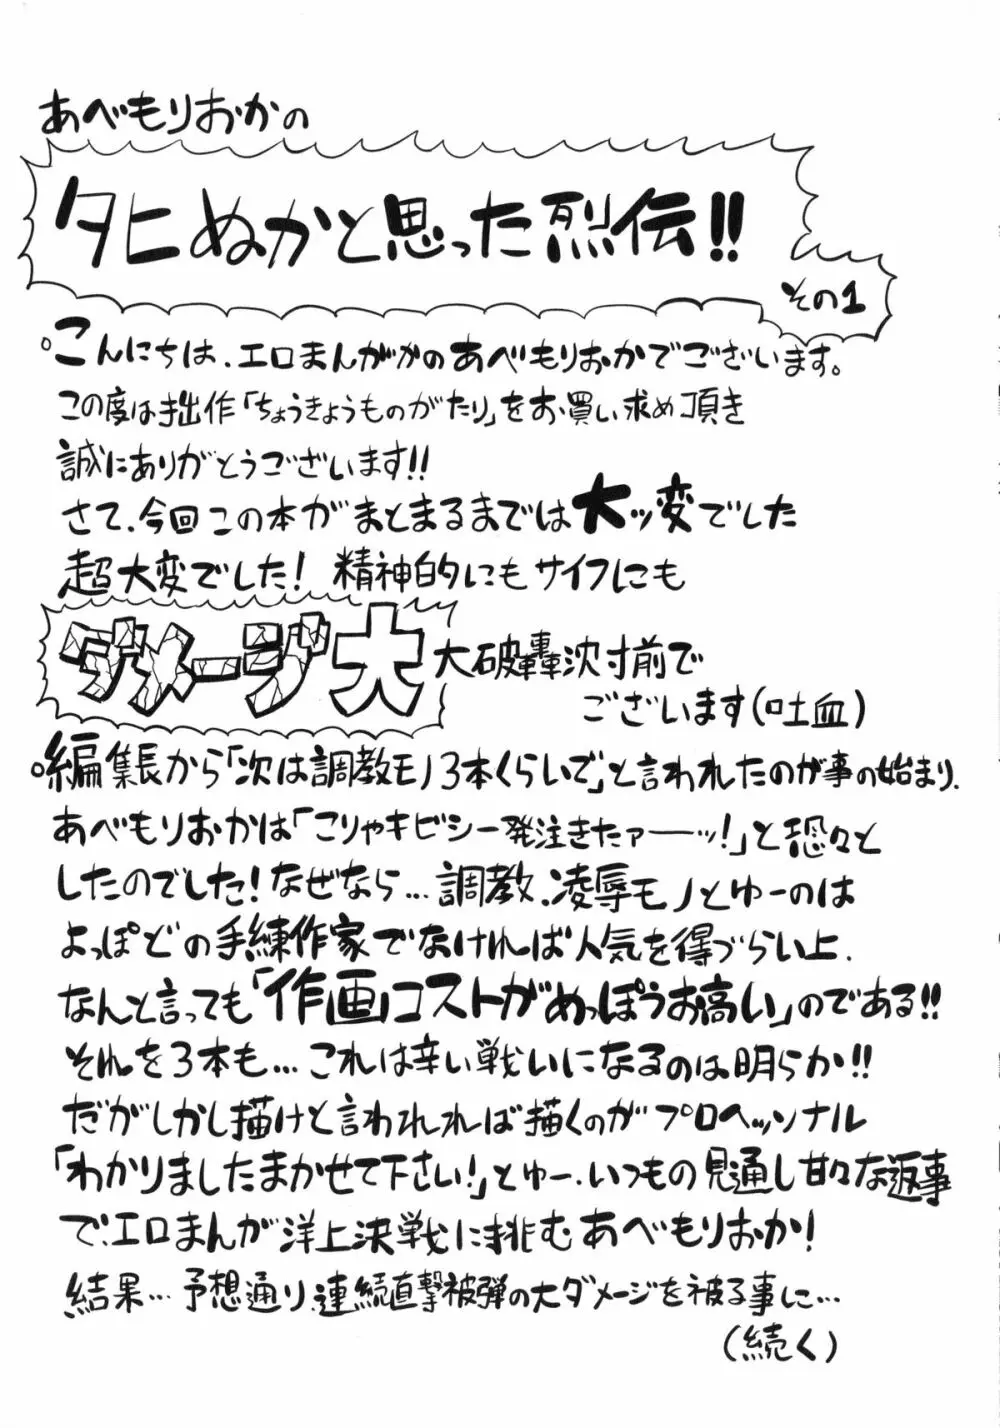 あべもりおかの
タヒぬかと思った烈伝!!
その1
。こんにちは、エロまんがかのあべもりおかでございます。
この度は拙作「ちょうきょうものがたり」をお買い求め頂き
誠にありがとうございます!!
さて、今回この本がまとまるまでは大ッ変でした
超大変でした! 精神的にもサイフにも
ダメージ大 大破轟沈寸前で
ございます(吐血)
。編集長から「次は調教モノ3本くらいで」と言われたのが事の始まり、
あべもりおかは「こりゃキビシー発注きたァーーッ!」と恐々と
したのでした!なぜなら…調教、凌辱モノとゆーのは
よっぽどの手練作家でなければ人気を得づらい上、
なんと言っても「作画コストがめっぽうお高い」のである!!
それを3本も…これは辛い戦いになるのは明らか!!
だがしかし描けと言われれば描くのがプロヘッツナル
「わかりましたまかせて下さい!」とゆー、いつもの見通し甘々な返事
で、エロまんが洋上決戦に挑むあべもりおか!
結果…予想通り、連続直撃被弾の大ダメージを被る事に…
(続く)